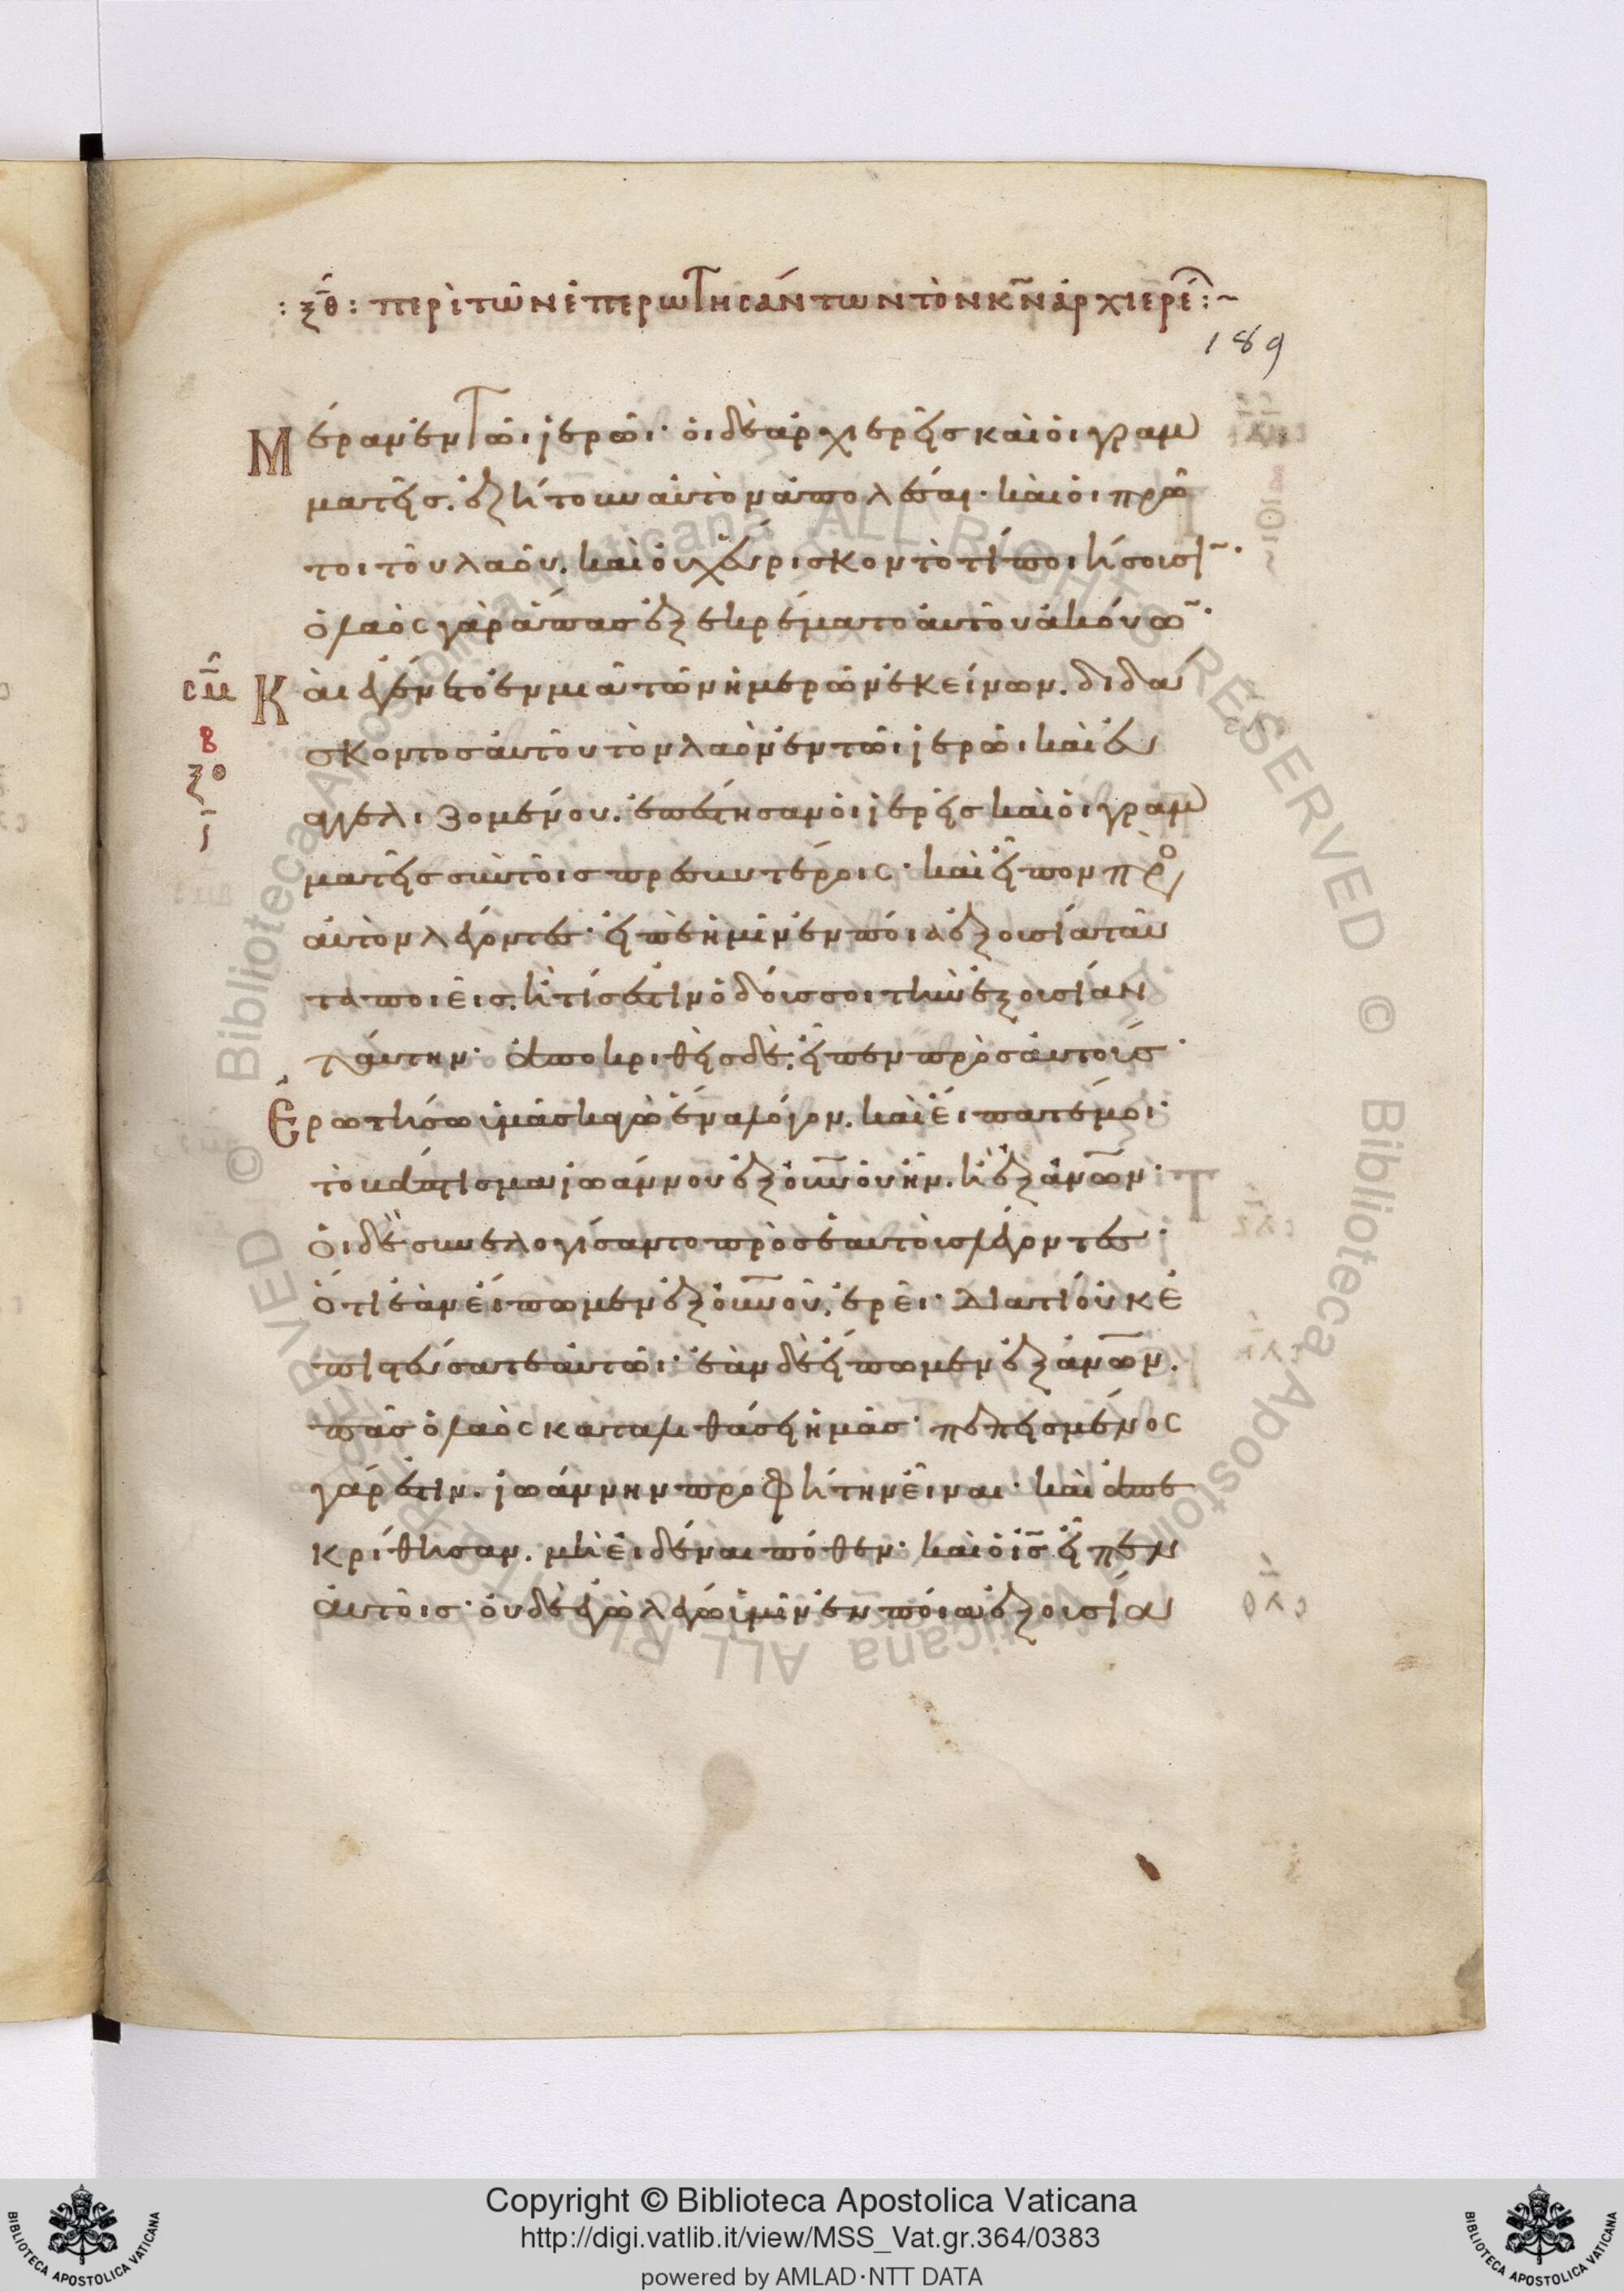 : ξθ : περὶ τῶν ἐπερωτησάντων τὸν κ̅ν̅ ἀρχιερέ :~
189
μέραν ἐν τῶι ἱερῶι· οἱ δὲ ἀρχιερεῖς καὶ οἱ γραμ
ματεῖς. ἐζήτουν αὐτὸν ἀπολέσαι· καὶ οἱ πρῶ
τοι τοῦ λαοῦ. καὶ οὐχ εὕρισκον τὸ τί ποιήσουσι~.
ὁ λαὸς γὰρ ἅπας ἐξεκρέματο αὐτοῦ ἀκούω~.
σ̅μ̅ Καὶ ἐγένετο ἐν μιᾶ τῶν ἡμερῶν ἐκείνων. διδά
β σκοντος αὐτοῦ τὸν λαὸν ἐν τῶι ἱερῶι καὶ εὐ
ι̅ αγγελιζομένου. ἐπέστησαν οἱ ἱερεῖς καὶ οἱ γραμ
ματεῖς σὺν τοῖς πρεσβυτέροις· καὶ εἶπον πρὸ
αὐτὸν λέγοντες· εἰπὲ ἡμῖν ἐν ποία ἐξουσία ταῦ
τα ποιεῖς. ἢ τίς ἐστιν ὁ δούς σοι τὴν ἐξουσίαν
ταύτην· ἀποκριθεὶς δὲ. εἶπεν πρὸς αὐτούς·
Ἐρωτήσω ὑμᾶς κἀγὼ ἕνα λόγον. καὶ εἴπατέ μοι·
τὸ βάπτισμα ἰωάννου ἐξ οὐ̅ν̅οῦ ἦν. ἢ ἐξ ἀ̅ν̅ω̅ν·
οἱ δὲ συνελογίσαντο πρὸς ἑαυτοὺς λέγοντες·
ὅτι ἐὰν εἴπωμεν ἐξ οὐ̅ν̅οῦ, ἐρεῖ· διατί οὐκ ἐ
πιστεύσατε αὐτῶι· ἐὰν δὲ εἴπωμεν ἐξ ἀ̅ν̅ω̅ν.
πᾶς ὁ λαὸς καταλιθάσει ἡμᾶς· πεπεισμένος
γάρ ἐστιν. ἰωάννην προφήτην εἶναι· καὶ ἀπε
κρίθησαν. μὴ εἰδέναι πόθεν· καὶ ὁ ι̅ς̅ εἶπεν
αὐτοῖς· οὐδὲ ἐγὼ λέγω ὑμῖν ἐν ποία ἐξουσία
Copyright © Biblioteca Apostolica Vaticana
http://digi.vatlib.it/view/MSS_Vat.gr.364/0383
powered by AMLAD·NTT DATA
BIBLIOTECA APOSTOLICA VATICANA
BIBLIOTECA APOSTOLICA VATICANA